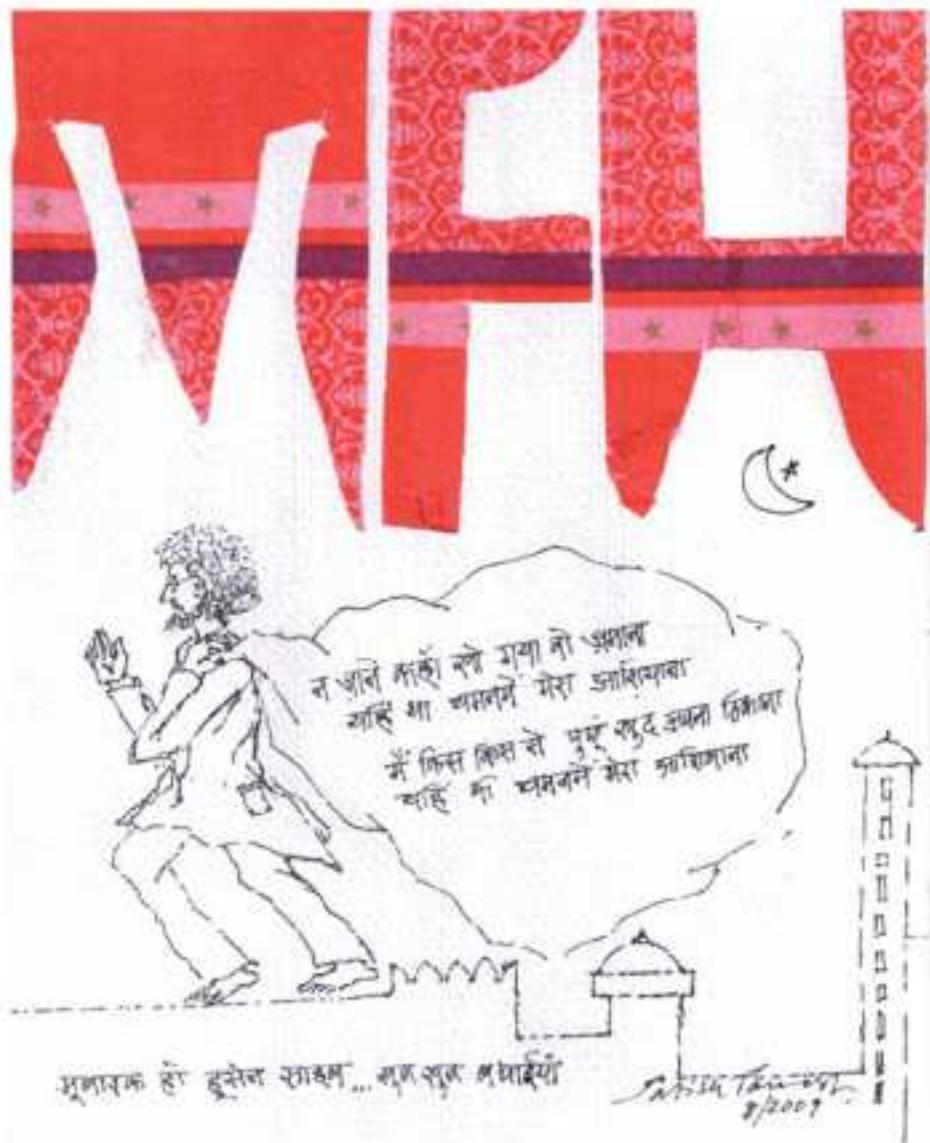 MFH
न जाने कहाँ खो गया वो ज़माना
यहिं था चमनमें मेरा आशियाना
मैं किस किस से पुछूं खुद अपना ठिकाना
यहिं था चमनमें मेरा आशियाना
मुबारक हो हुसेन साहब... खुब खुब बधाईयाँ
Satish
8/2009